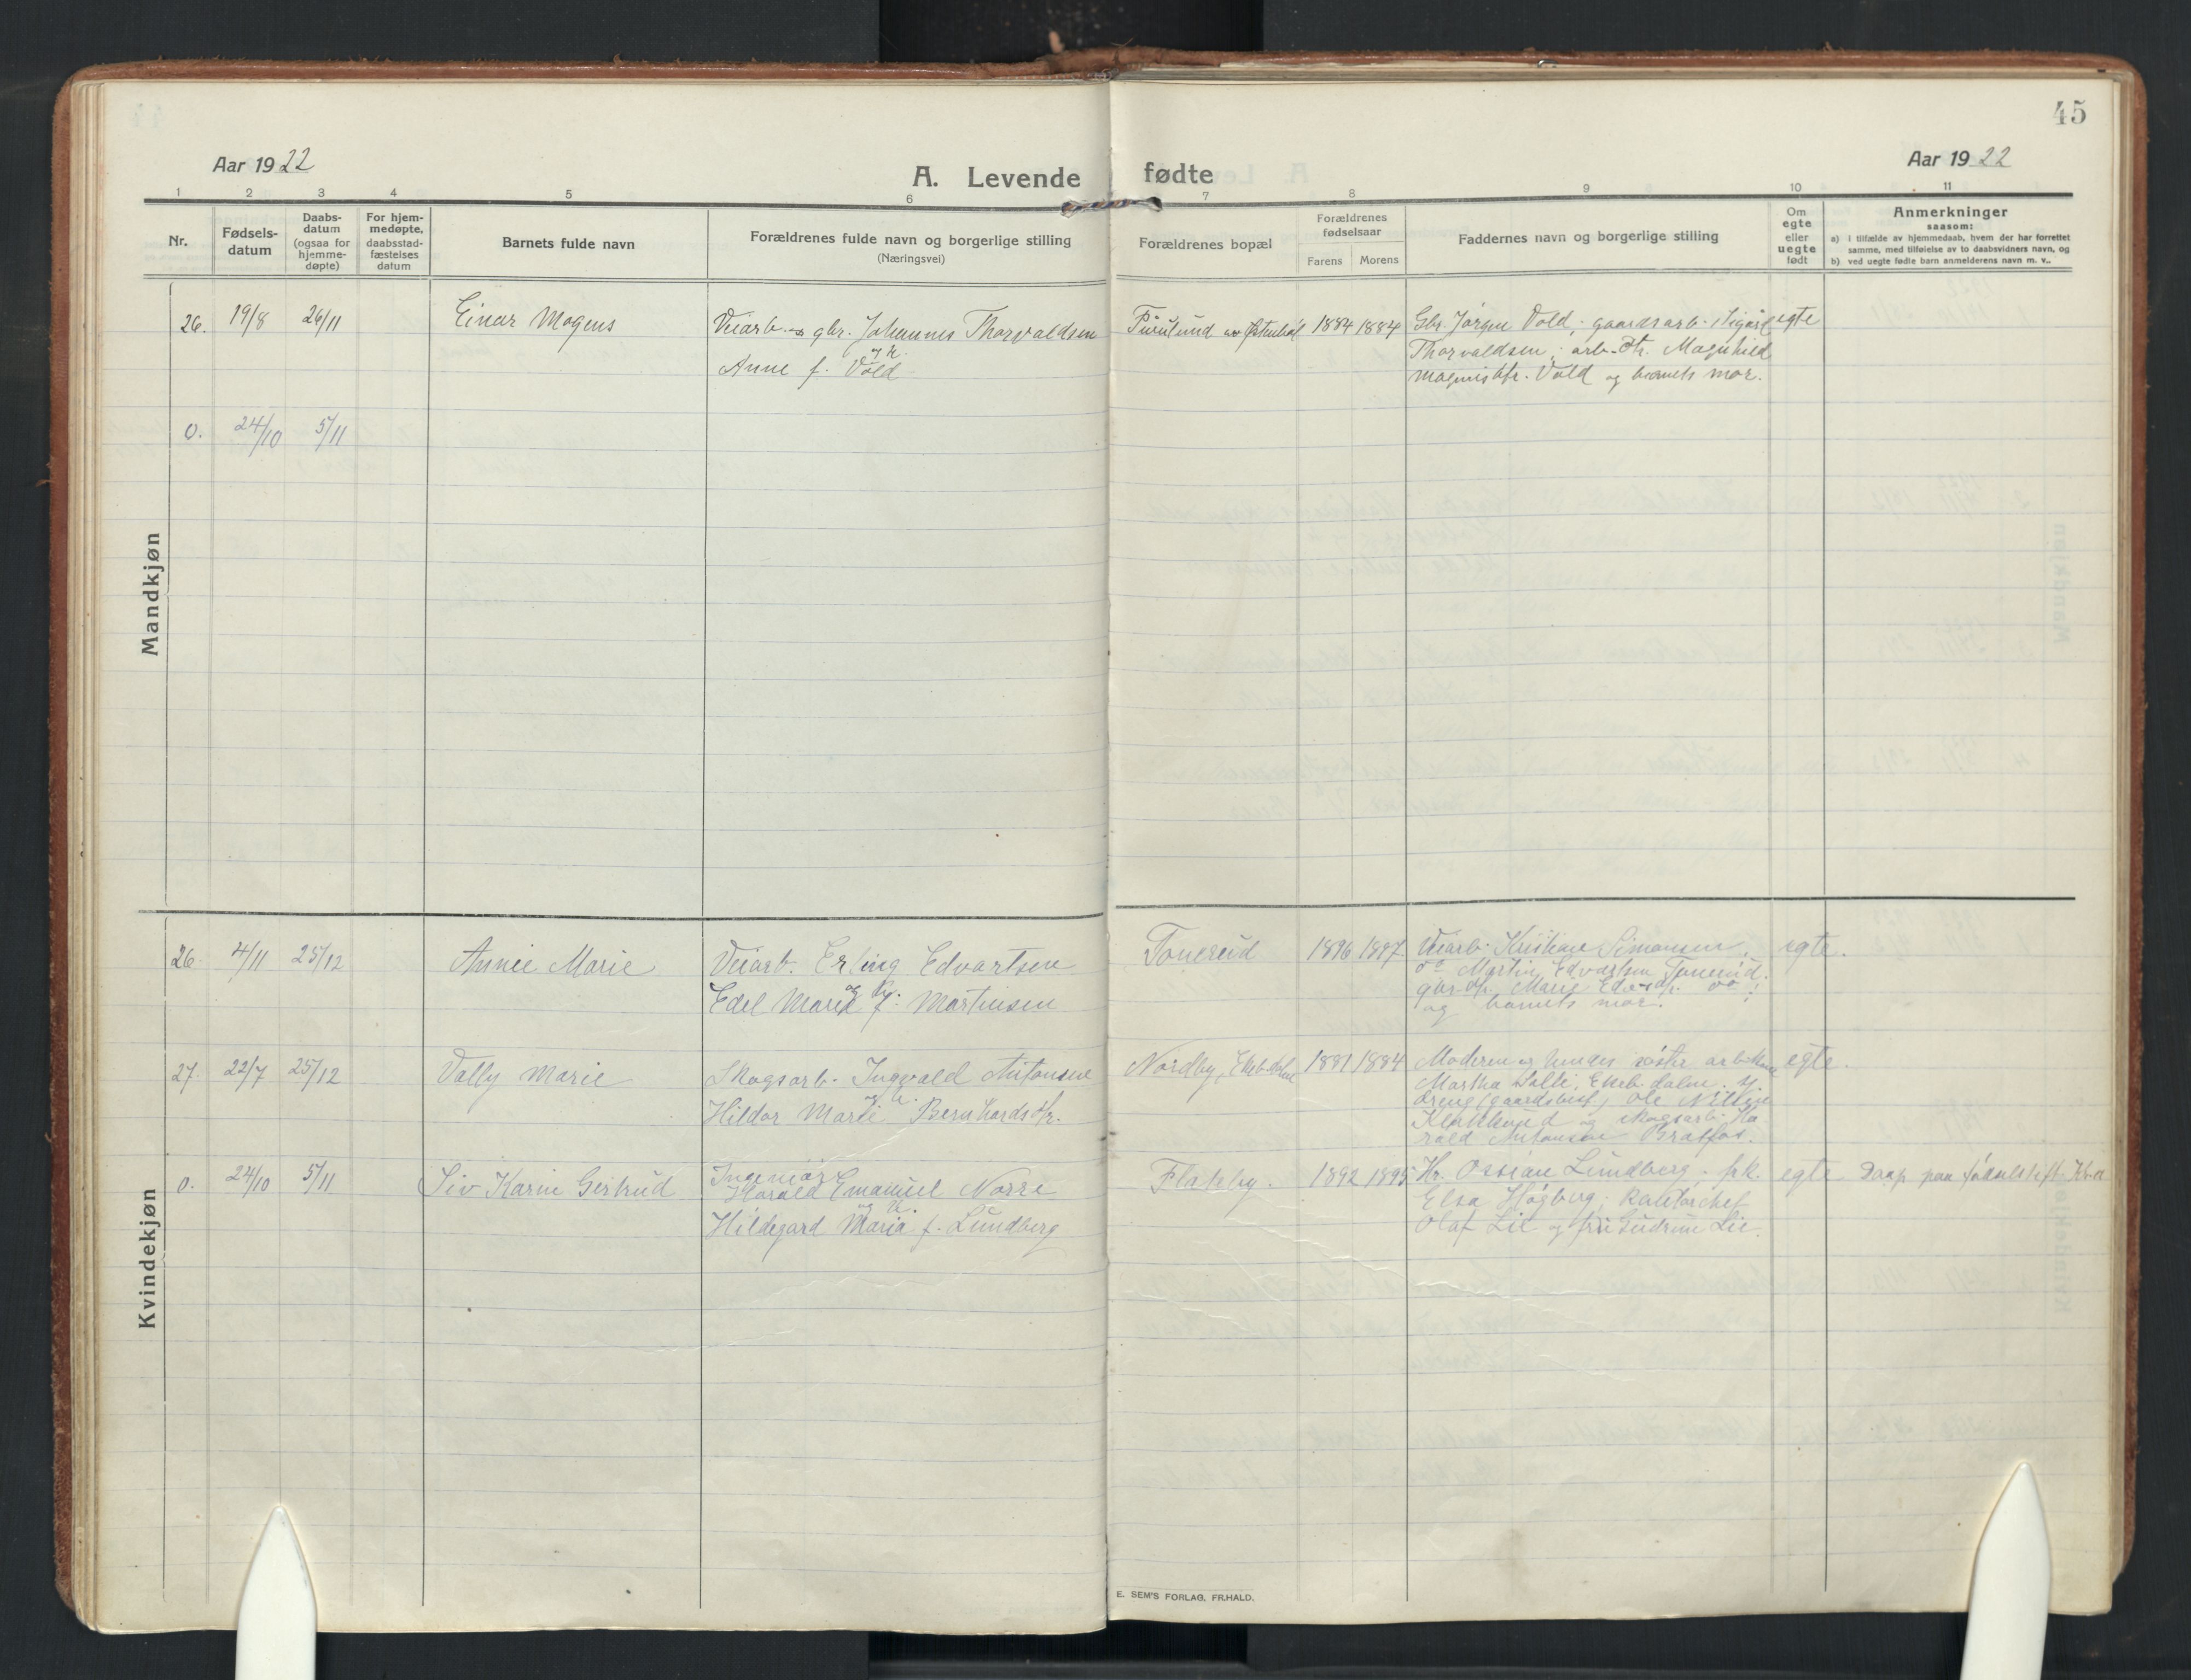 45
Aar 1922
A. Levende fødte
Aar 1922
1 2 3 4 5 6 7 8 9 10 11
Nr.
Fødsels-
datum
Daabs-
datum
(ogsaa for
hjemme-
døpte)
For hjem-
medøpte,
daabsstad-
fæstelses
datum
Barnets fulde navn
Forældrenes fulde navn og borgerlige stilling
(Næringsvei)
Forældrenes bopæl
Forældrenes
fødselsaar
Farens Morens
Faddernes navn og borgerlige stilling
Om
egte
eller
uegte
født
Anmerkninger
saasom:
a) i tilfælde av hjemmedaab, hvem der har forrettet
samme, med tilføielse av to daabsvidners navn, og
b) ved uegte fødte barn anmelderens navn m. v..
Mandkjøn
26. 19/8 26/11 Einar Mogens Veiarb. gbr. Johannes Thorvaldsen 1884 1884 Gbr. Jörgen Vold; gaardsarb. Sigurd egte
og h.
Anne f. Vold
Thorvaldsen; arb. dtr. Magnhild
Magnusdtr. Vold og barnets mor.
0. 24/10 5/11
Kvindekjøn
26. 4/11 25/12 Annie Marie Veiarb. Erling Edvartsen Tonerud 1896 1897 Veiarb. Kristian Simonsen, egte.
do Martin Edvartsen Tonerud.
og h.
Edel Marie f. Martinsen
Marie
og barnets mor.
27. 22/7 25/12 Vally Marie Skogsarb. Ingvald Antonsen Nordby, 1881 1884 Moderen og hendes söster egte.
og h.
Hildor Marie Bernhardsdtr.
Martha
dreng (gaardsbest) Ole
og skogsarb. Ha
rald Antonsen Bratfos.
0. 24/10 5/11 Siv Karin Gertrud Ingeniör Flateby. 1892 1895 Hr. Ossian Lundberg; frk. egte Daap paa födselstift. Kr.a
Harald Emanuel Norre
og h.
Hildegard Maria f. Lundberg
Elsa Högberg; kontorchef
Olaf Lie og fru Gudrun Lie.
E. SEM'S FORLAG, FR.HALD.